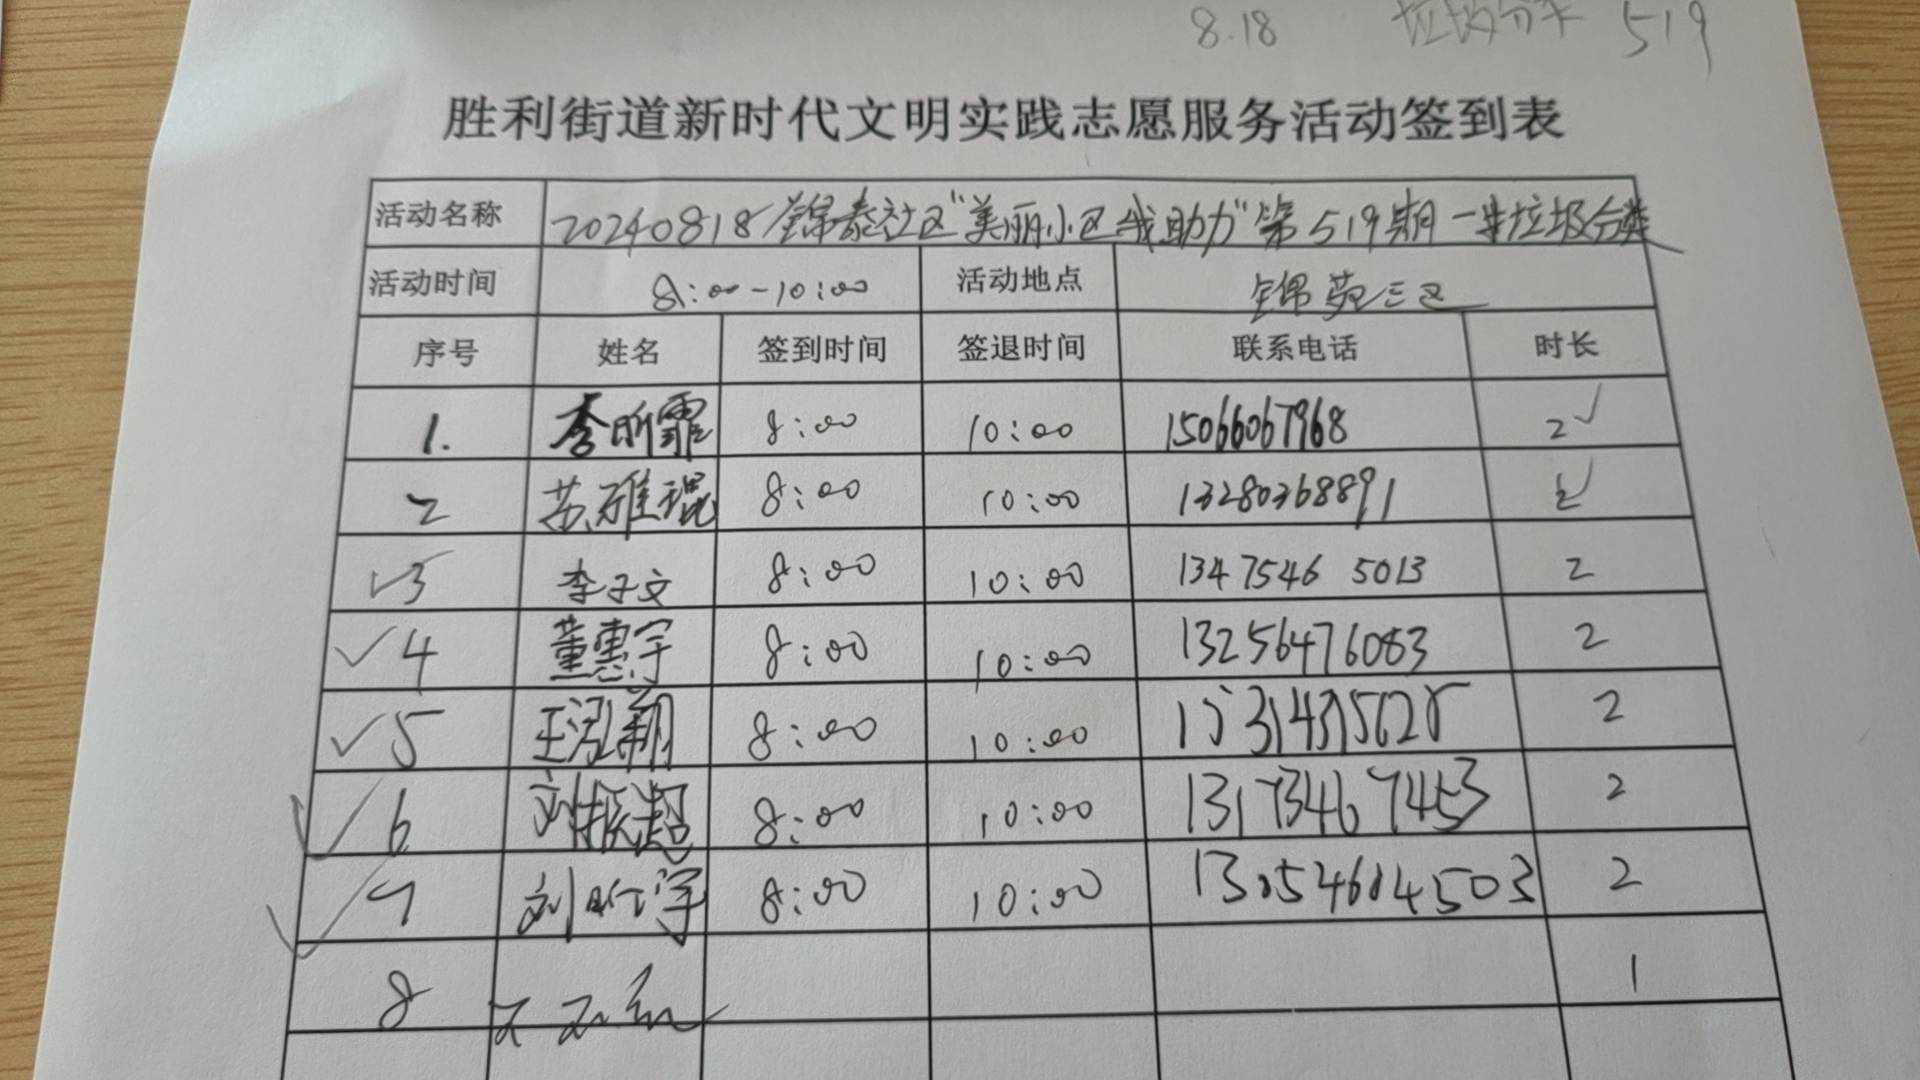 8.18 垃圾分类 519
胜利街道新时代文明实践志愿服务活动签到表
活动名称 20240818锦泰社区"美丽小区我助力"第519期—垃圾分类
活动时间 8:00-10:00 活动地点 锦苑三区
序号 姓名 签到时间 签退时间 联系电话 时长
1. 李昕霏 8:00 10:00 15066067968 2✓
2 苏雅琨 8:00 10:00 13280368891 2✓
✓3 李子文 8:00 10:00 1347546 5013 2
✓4 董惠宇 8:00 10:00 13256476083 2
✓5 王泓翔 8:00 10:00 2
✓6 刘振超 8:00 10:00 13173467453 2
✓7 刘昕洋 8:00 10:00 2
8 1